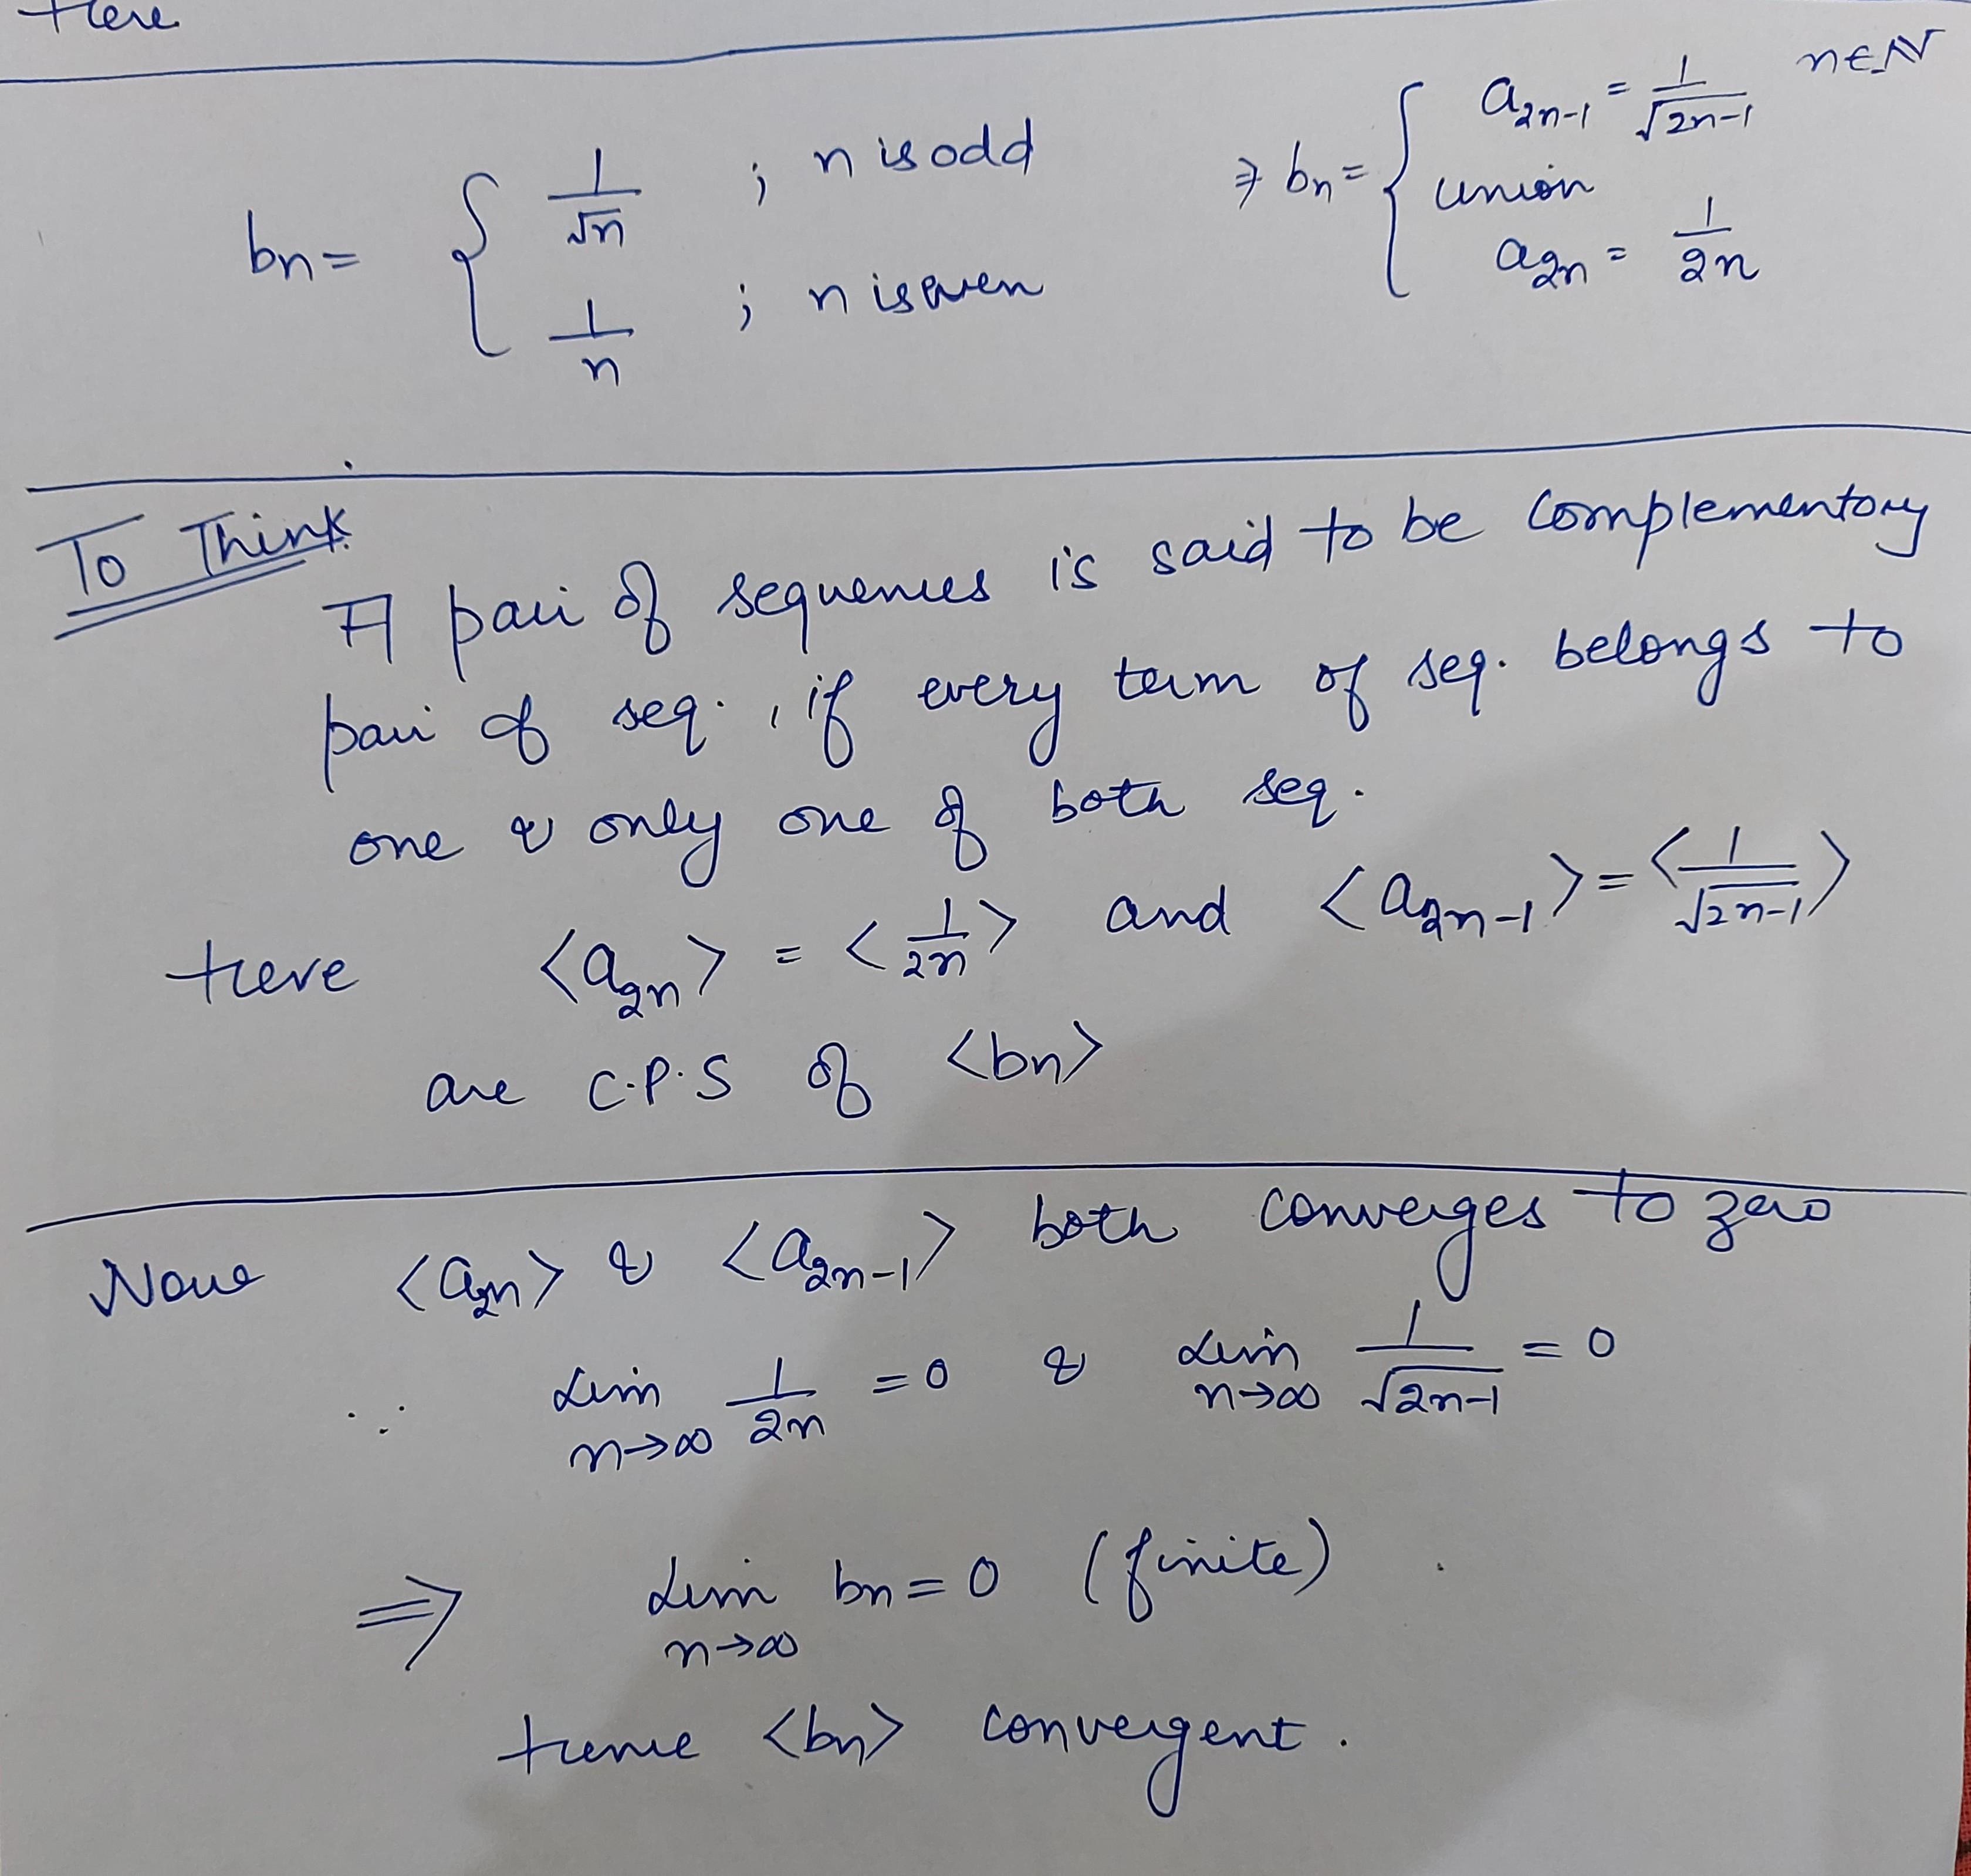 Here
bn = { 1/√n ; n is odd
1/n ; n is even
⇒ bn = { a2n-1 = 1/√2n-1 n∈N
union
a2n = 1/2n
To Think
A pair of sequences is said to be complementary
pair of seq., if every term of seq. belongs to
one & only one of both seq.
Here <a2n> = <1/2n> and <a2n-1> = <1/√2n-1>
are C.P.S of <bn>
Now <a2n> & <a2n-1> both converges to zero
∵ Lim n→∞ 1/2n = 0 & Lim n→∞ 1/√2n-1 = 0
⇒ Lim n→∞ bn = 0 (finite)
Hence <bn> convergent.